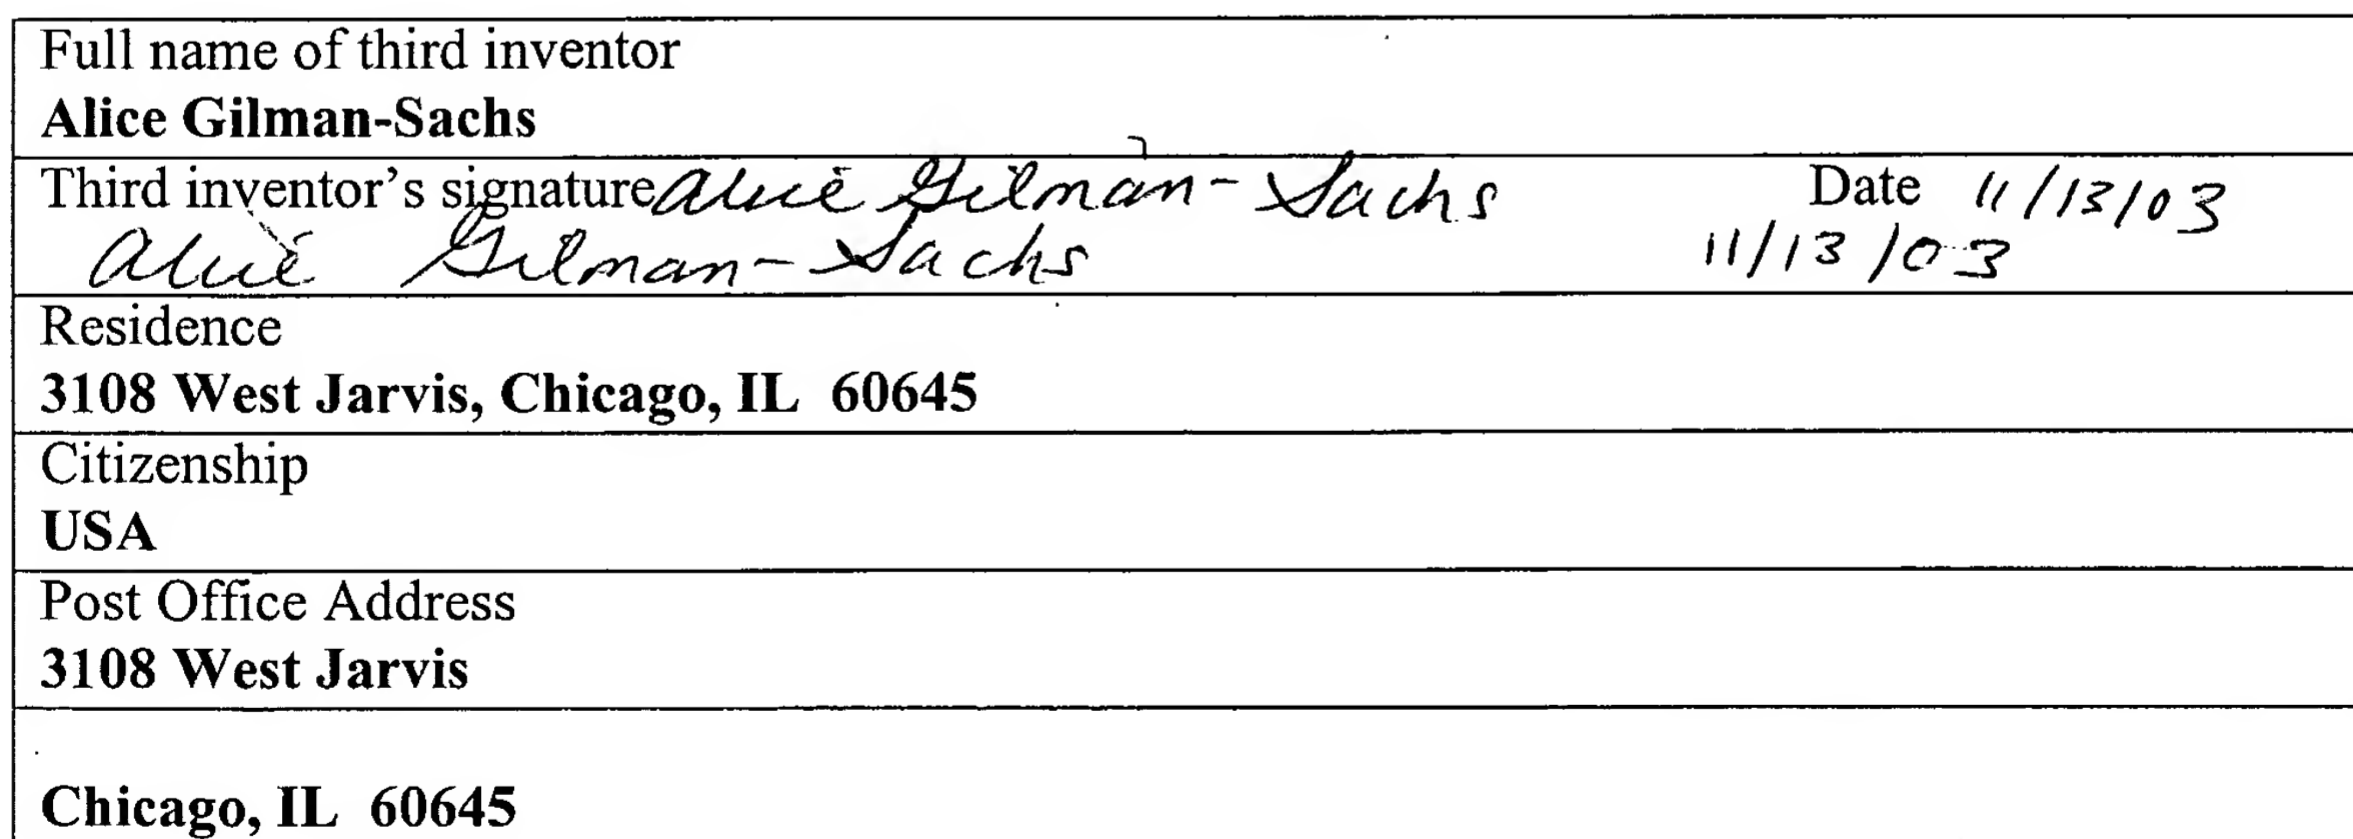 Full name of third inventor
Alice Gilman-Sachs
Third inventor’s signature Alice Gilman-Sachs Date 11/13/03
Alice Gilman-Sachs 11/13/03
Residence
3108 West Jarvis, Chicago, IL 60645
Citizenship
USA
Post Office Address
3108 West Jarvis
Chicago, IL 60645